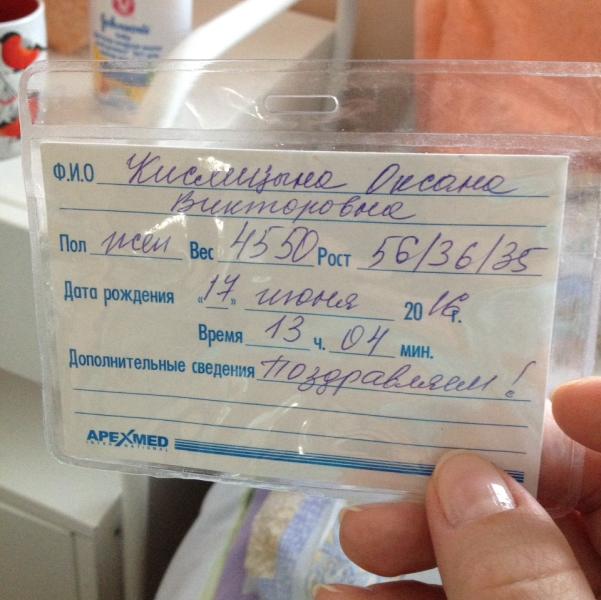 Johnson's
Ф.И.О Кислицына Оксана
Викторовна
Пол жен Вес 4550 Рост 56/36/35
Дата рождения «17» июня 2016г.
Время 13 ч. 04 мин.
Дополнительные сведения Поздравляем!
APEXMED
INTERNATIONAL